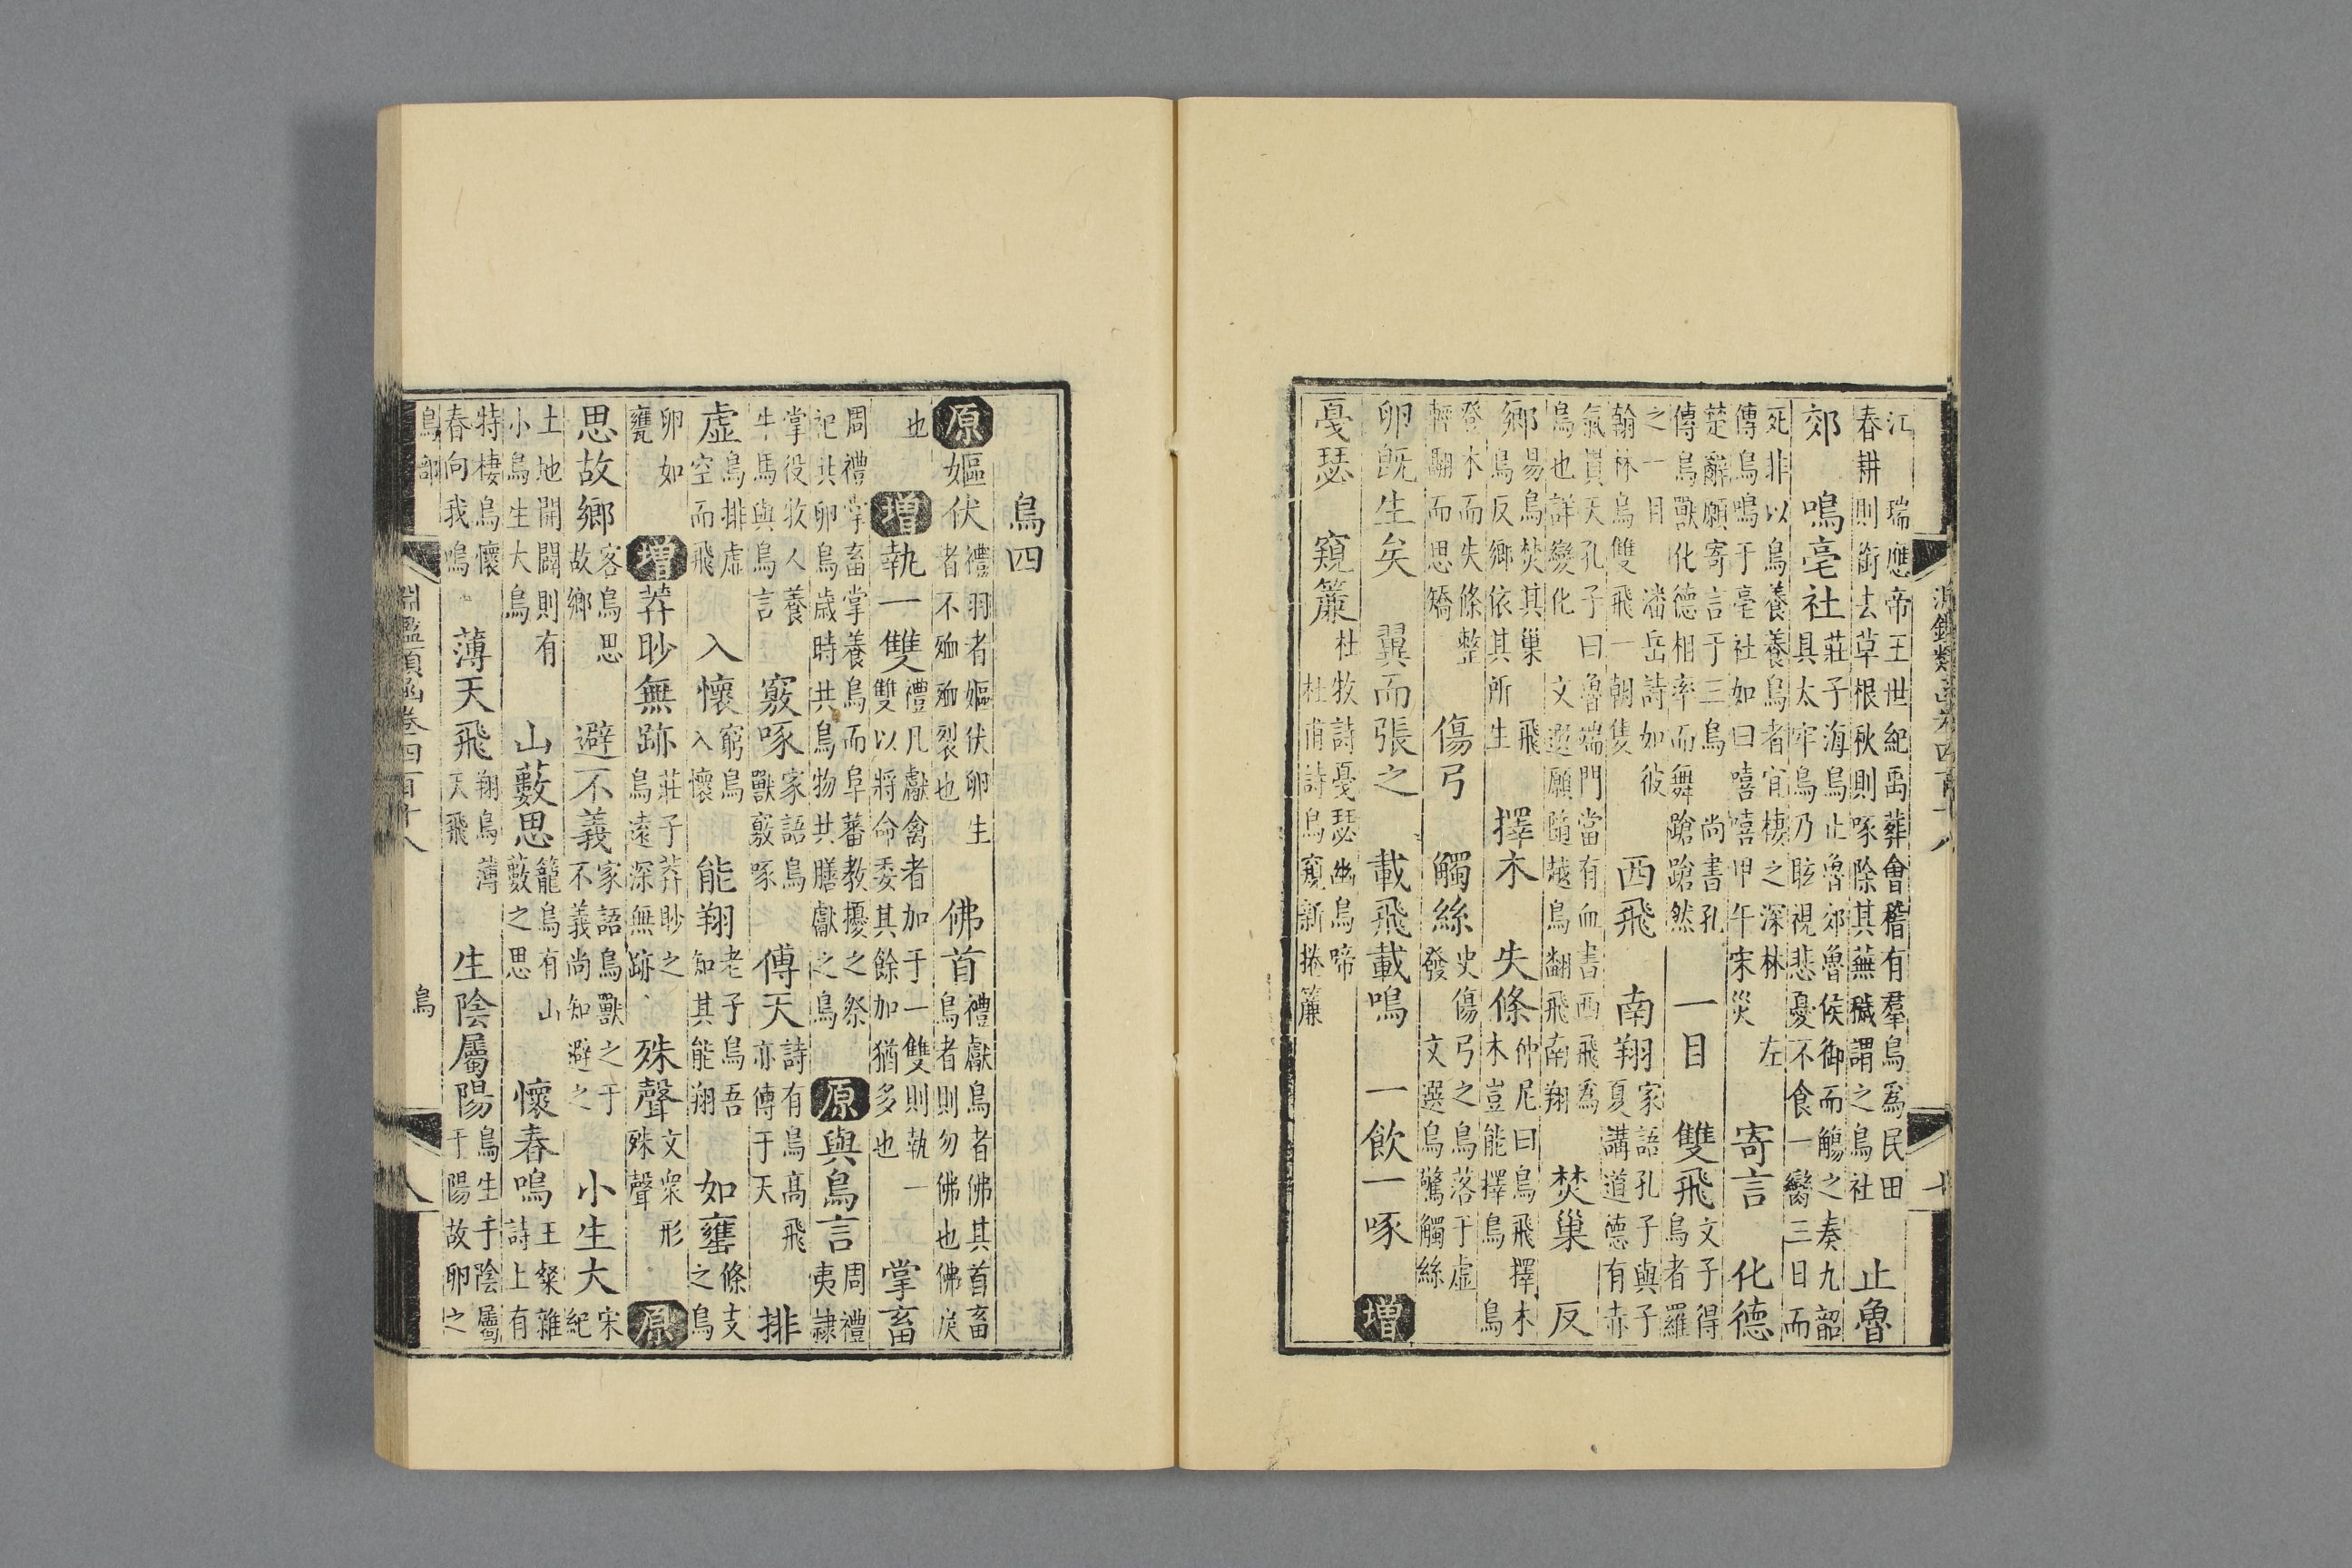 淵鑑類函卷四百十八
江　瑞應帝王世紀禹葬會稽有羣鳥爲民田
春耕則銜去草根秋則啄除其蕪穢謂之鳥社
止魯
郊　鳴亳社
莊子海鳥止魯郊魯侯御而觴之奏九韶
具太牢鳥乃眩視悲憂不食一臠三日而
死非以鳥養養鳥者宜棲之深林　左
傳鳥鳴于亳社如曰嘻嘻甲午宋災
寄言　化德
楚辭願寄言于三鳥　尚書孔
傳鳥獸化德相率而舞蹌蹌然
一目　雙飛
文子得
鳥者羅
之一目　潘岳詩如彼
翰林鳥雙飛一朝隻
西飛　南翔
家語孔子與子
夏講道德有赤
氣貫天孔子曰魯端門當有血書西飛爲
鳥也詳變化　文選願隨越鳥翻飛南翔
焚巢　反
鄉
易鳥焚其巢　飛
鳥反鄉依其所生
擇木　失條
仲尼曰鳥飛擇木
木豈能擇鳥　鳥
登木而失條整
輕翮而思矯
傷弓　觸絲
史傷弓之鳥落于虛
發　文選鳥驚觸絲
卵既生矣　翼而張之　載飛載鳴　一飲一啄　增
戞瑟　窺簾
杜牧詩戞瑟幽鳥啼
杜甫詩鳥窺新捲簾
鳥四
原嫗伏
禮羽者嫗伏卵生
者不殈殈裂也
佛首
禮獻鳥者佛其首畜
鳥者則勿佛也佛戾
也
增執一雙
禮凡獻禽者加于一雙則執一
雙以將命委其餘加猶多也
掌畜
周禮掌畜掌養鳥而阜蕃教擾之祭
祀共卵鳥歲時共鳥物共膳獻之鳥
原與鳥言
周禮
夷隸
掌役牧人養
牛馬與鳥言
竅啄
家語鳥
獸竅啄
傅天
詩有鳥高飛
亦傅于天
排
虛
鳥排虛
空而飛
入懷
窮鳥
入懷
能翔
老子鳥吾
知其能翔
如甕
條支
之鳥
卵如
甕
增莽眇無跡
莊子莽眇之
鳥遠深無跡
殊聲
文衆形
殊聲
原
思故鄉
客鳥思
故鄉
避不義
家語鳥獸之于
不義尚知避之
小生大
宋
紀
土地開闢則有
小鳥生大鳥
山藪思
籠鳥有山
藪之思
懷春鳴
王粲雜
詩上有
特棲鳥懷
春向我鳴
薄天飛
翔鳥薄
天飛
生陰屬陽
鳥生于陰屬
于陽故卵之
鳥部
鳥
淵鑑類函卷四百十八
八